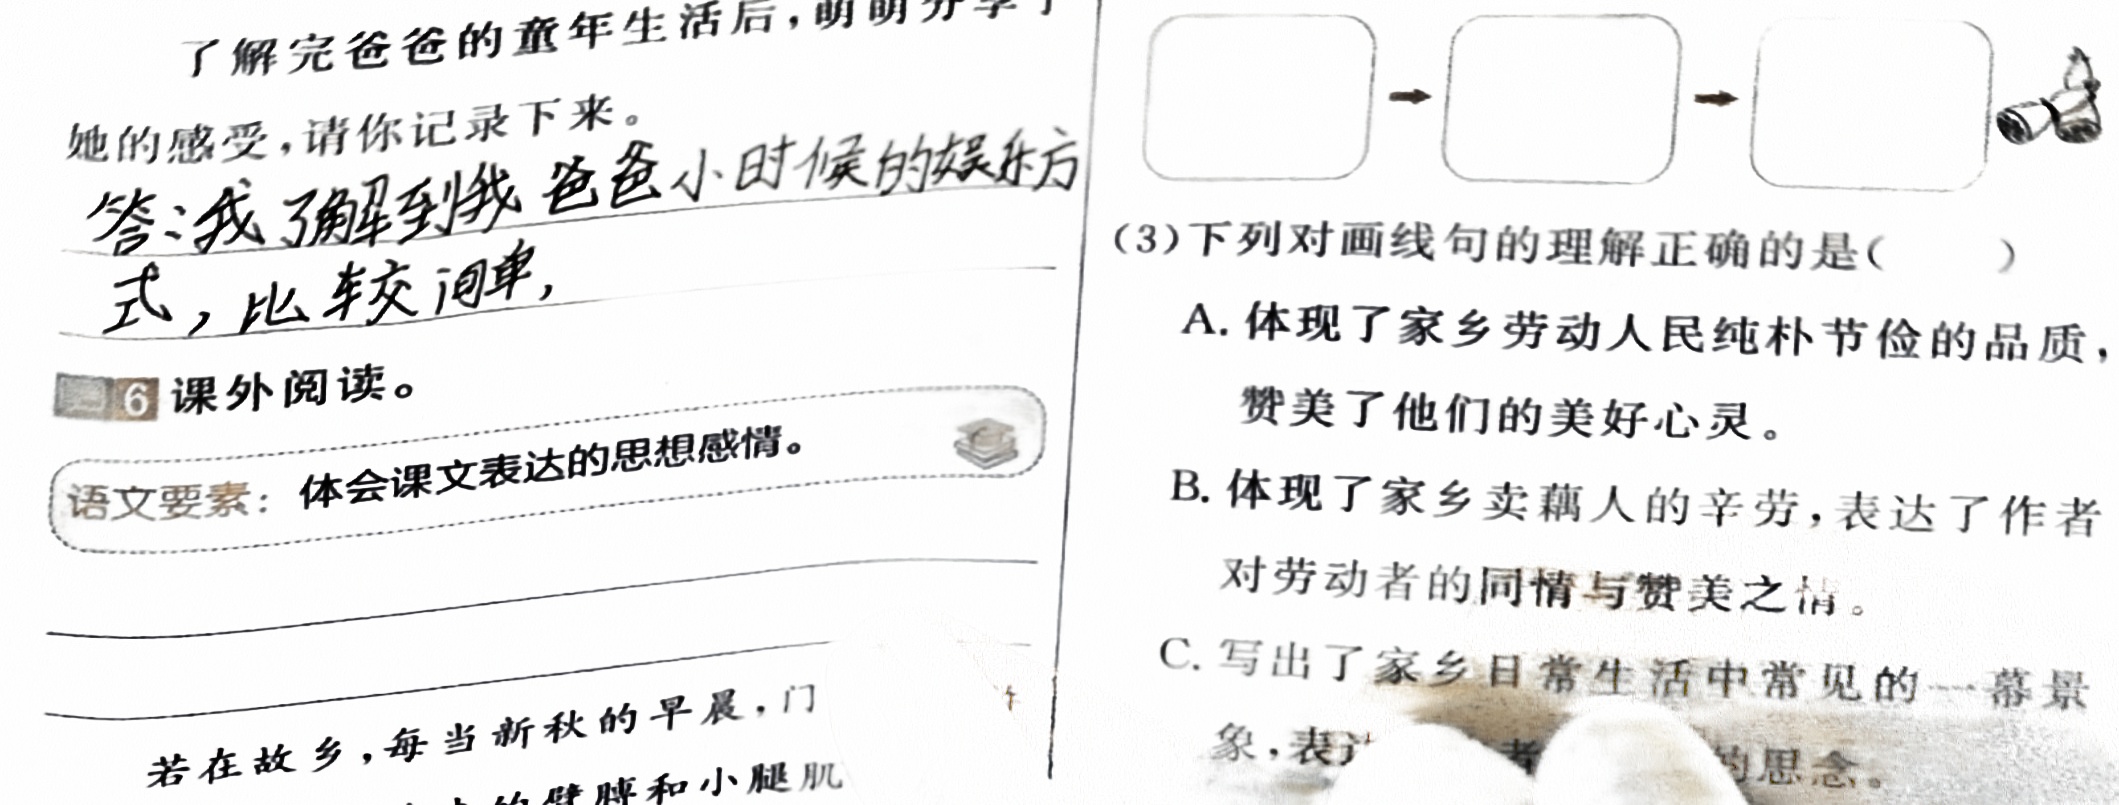 了解完爸爸的童年生活后，萌萌分享了
她的感受，请你记录下来。
答：我了解到我爸爸小时候的娱乐方
式，比较简单，
6 课外阅读。
语文要素：体会课文表达的思想感情。
若在故乡，每当新秋的早晨，门
的臂膊和小腿肌
（3）下列对画线句的理解正确的是（ ）
A. 体现了家乡劳动人民纯朴节俭的品质，
赞美了他们的美好心灵。
B. 体现了家乡卖藕人的辛劳，表达了作者
对劳动者的同情与赞美之情。
C. 写出了家乡日常生活中常见的一幕景
象，表达 者 的思念。